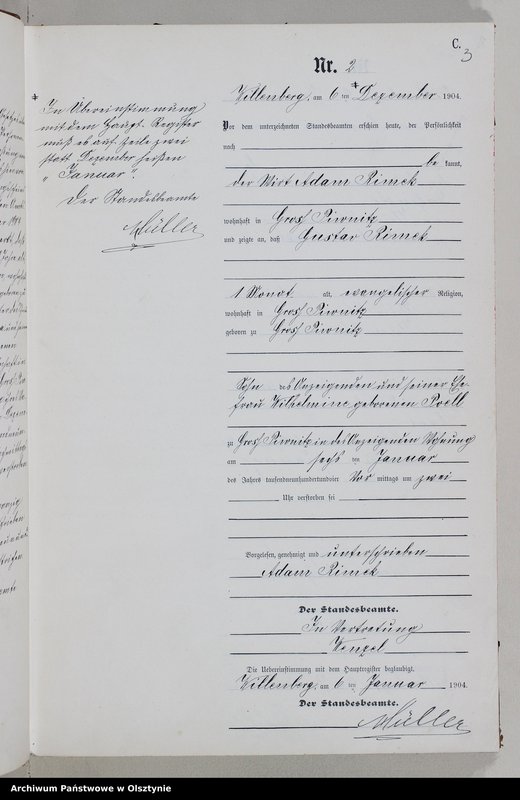 C.
3
Nr. 2
Willenberg, am 6 ten * Dezember 1904.
Vor dem unterzeichneten Standesbeamten erschien heute, der Persönlichkeit
nach
be kannt,
der Wirt Adam Rimek
wohnhaft in Groß Piwnitz
und zeigte an, daß Gustav Rimek
1 Monat alt, evangelischer Religion,
wohnhaft in Groß Piwnitz
geboren zu Groß Piwnitz
Sohn des Anzeigenden und seiner Ehe-
frau Wilhelmine geborenen
zu Groß Piwnitz in des Anzeigenden Wohnung
am sechs ten Januar
des Jahres tausendneunhundertundvier Vor mittags um zwei
Uhr verstorben sei
Vorgelesen, genehmigt und unterschrieben
Adam Rimek
Der Standesbeamte.
In Vertretung
Wenzel
Die Uebereinstimmung mit dem Hauptregister beglaubigt.
Willenberg, am 6 ten Januar 1904.
Der Standesbeamte.
Müller
* In Übereinstimmung
mit dem Haupt-Register
muß es auf Zeile zwei
statt Dezember heißen
"Januar".
Der Standesbeamte
Müller
Archiwum Państwowe w Olsztynie